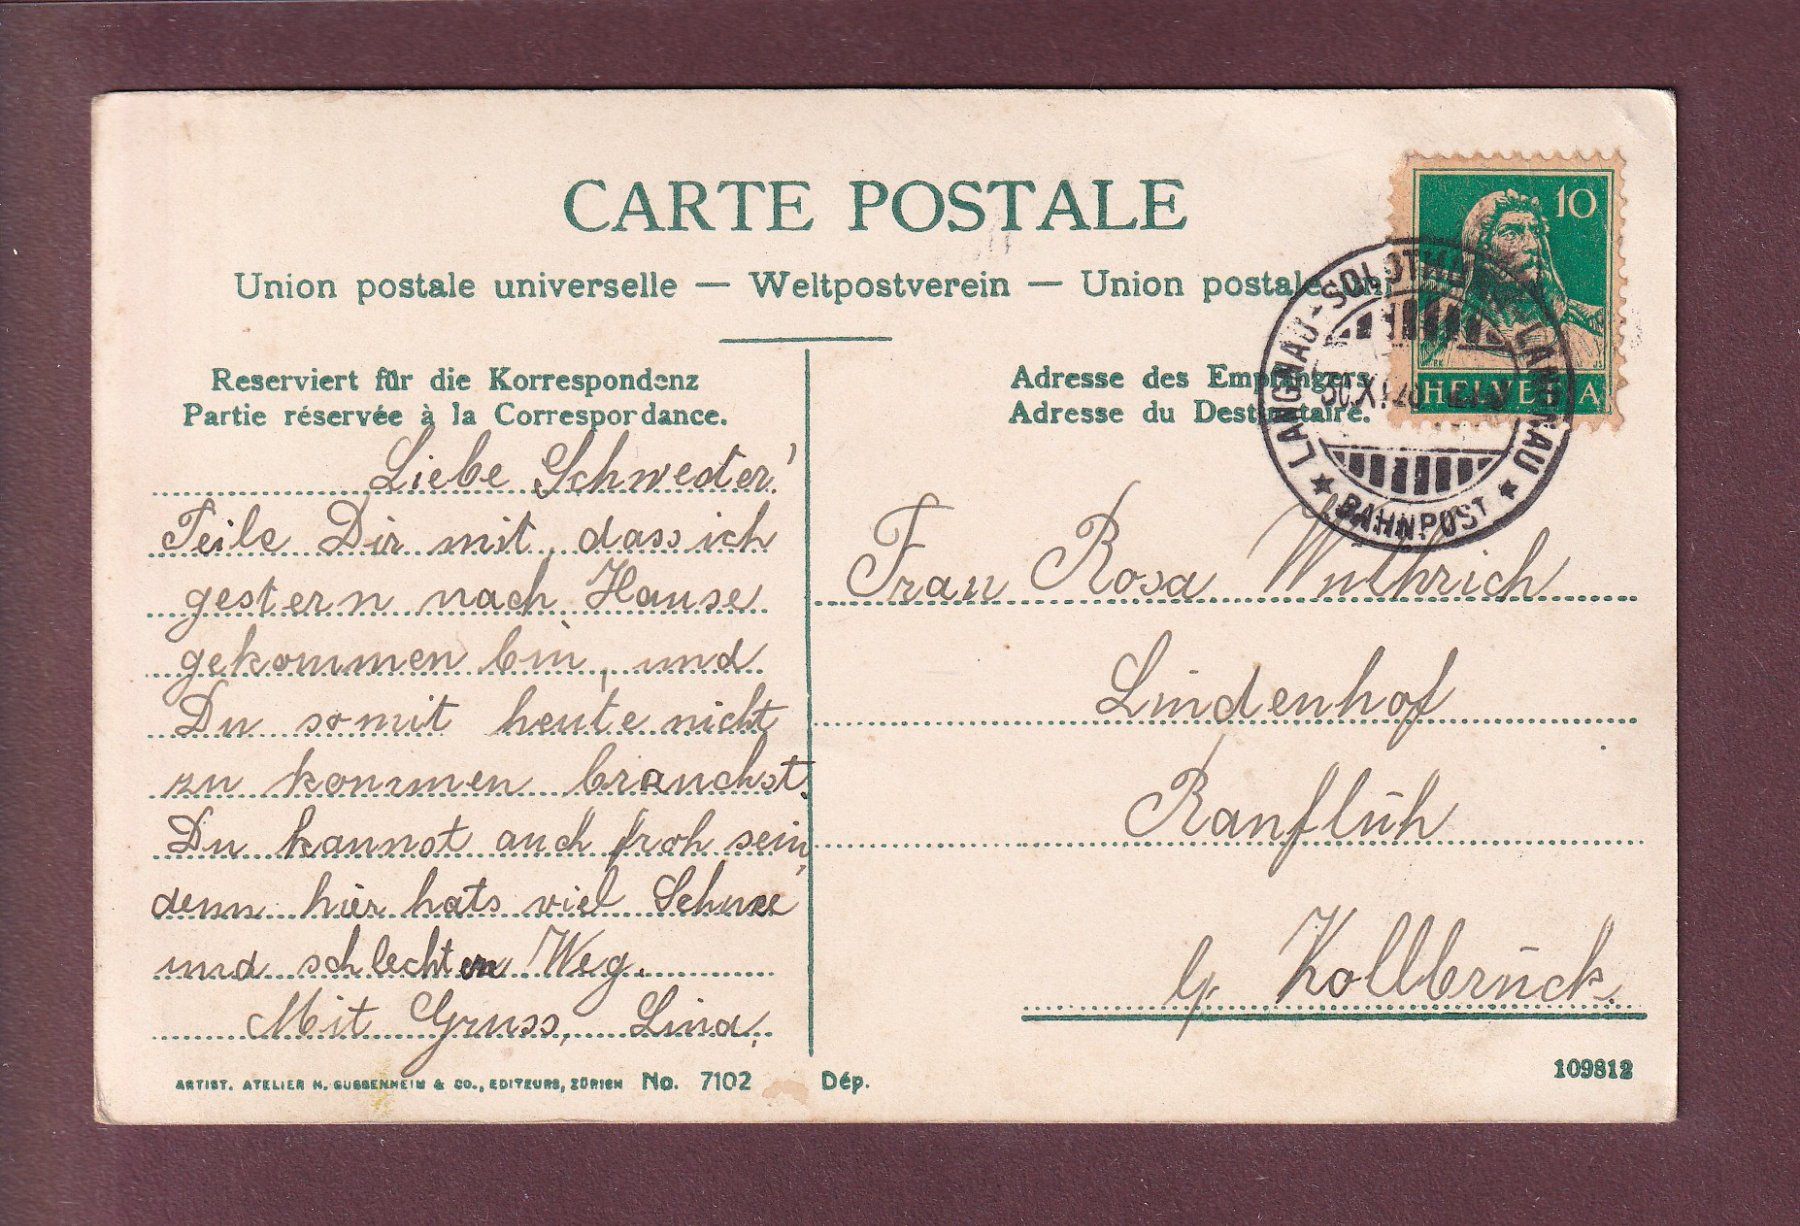 CARTE POSTALE
Union postale universelle — Weltpostverein — Union postale
Reserviert für die Korrespondenz
Partie réservée à la Correspondance.
Adresse des Empfängers.
Adresse du Destinataire.
10
HELVETIA
LANGNAU-SOLOTHURN-LANGNAU
30.XI.
★ BAHNPOST ★
Liebe Schwester!
Teile Dir mit, dass ich
gestern nach Hause
gekommen bin, und
Du somit heute nicht
zu kommen brauchst.
Du kannst auch froh sein,
denn hier hats viel Schnee
und schlechten Weg.
Mit Gruss, Lina,
Frau Rosa Wüthrich
Lindenhof
Ranflüh
b/ Zollbrück.
ARTIST. ATELIER H. GUGGENHEIM & CO., EDITEURS, ZÜRICH No. 7102 Dép.
109812